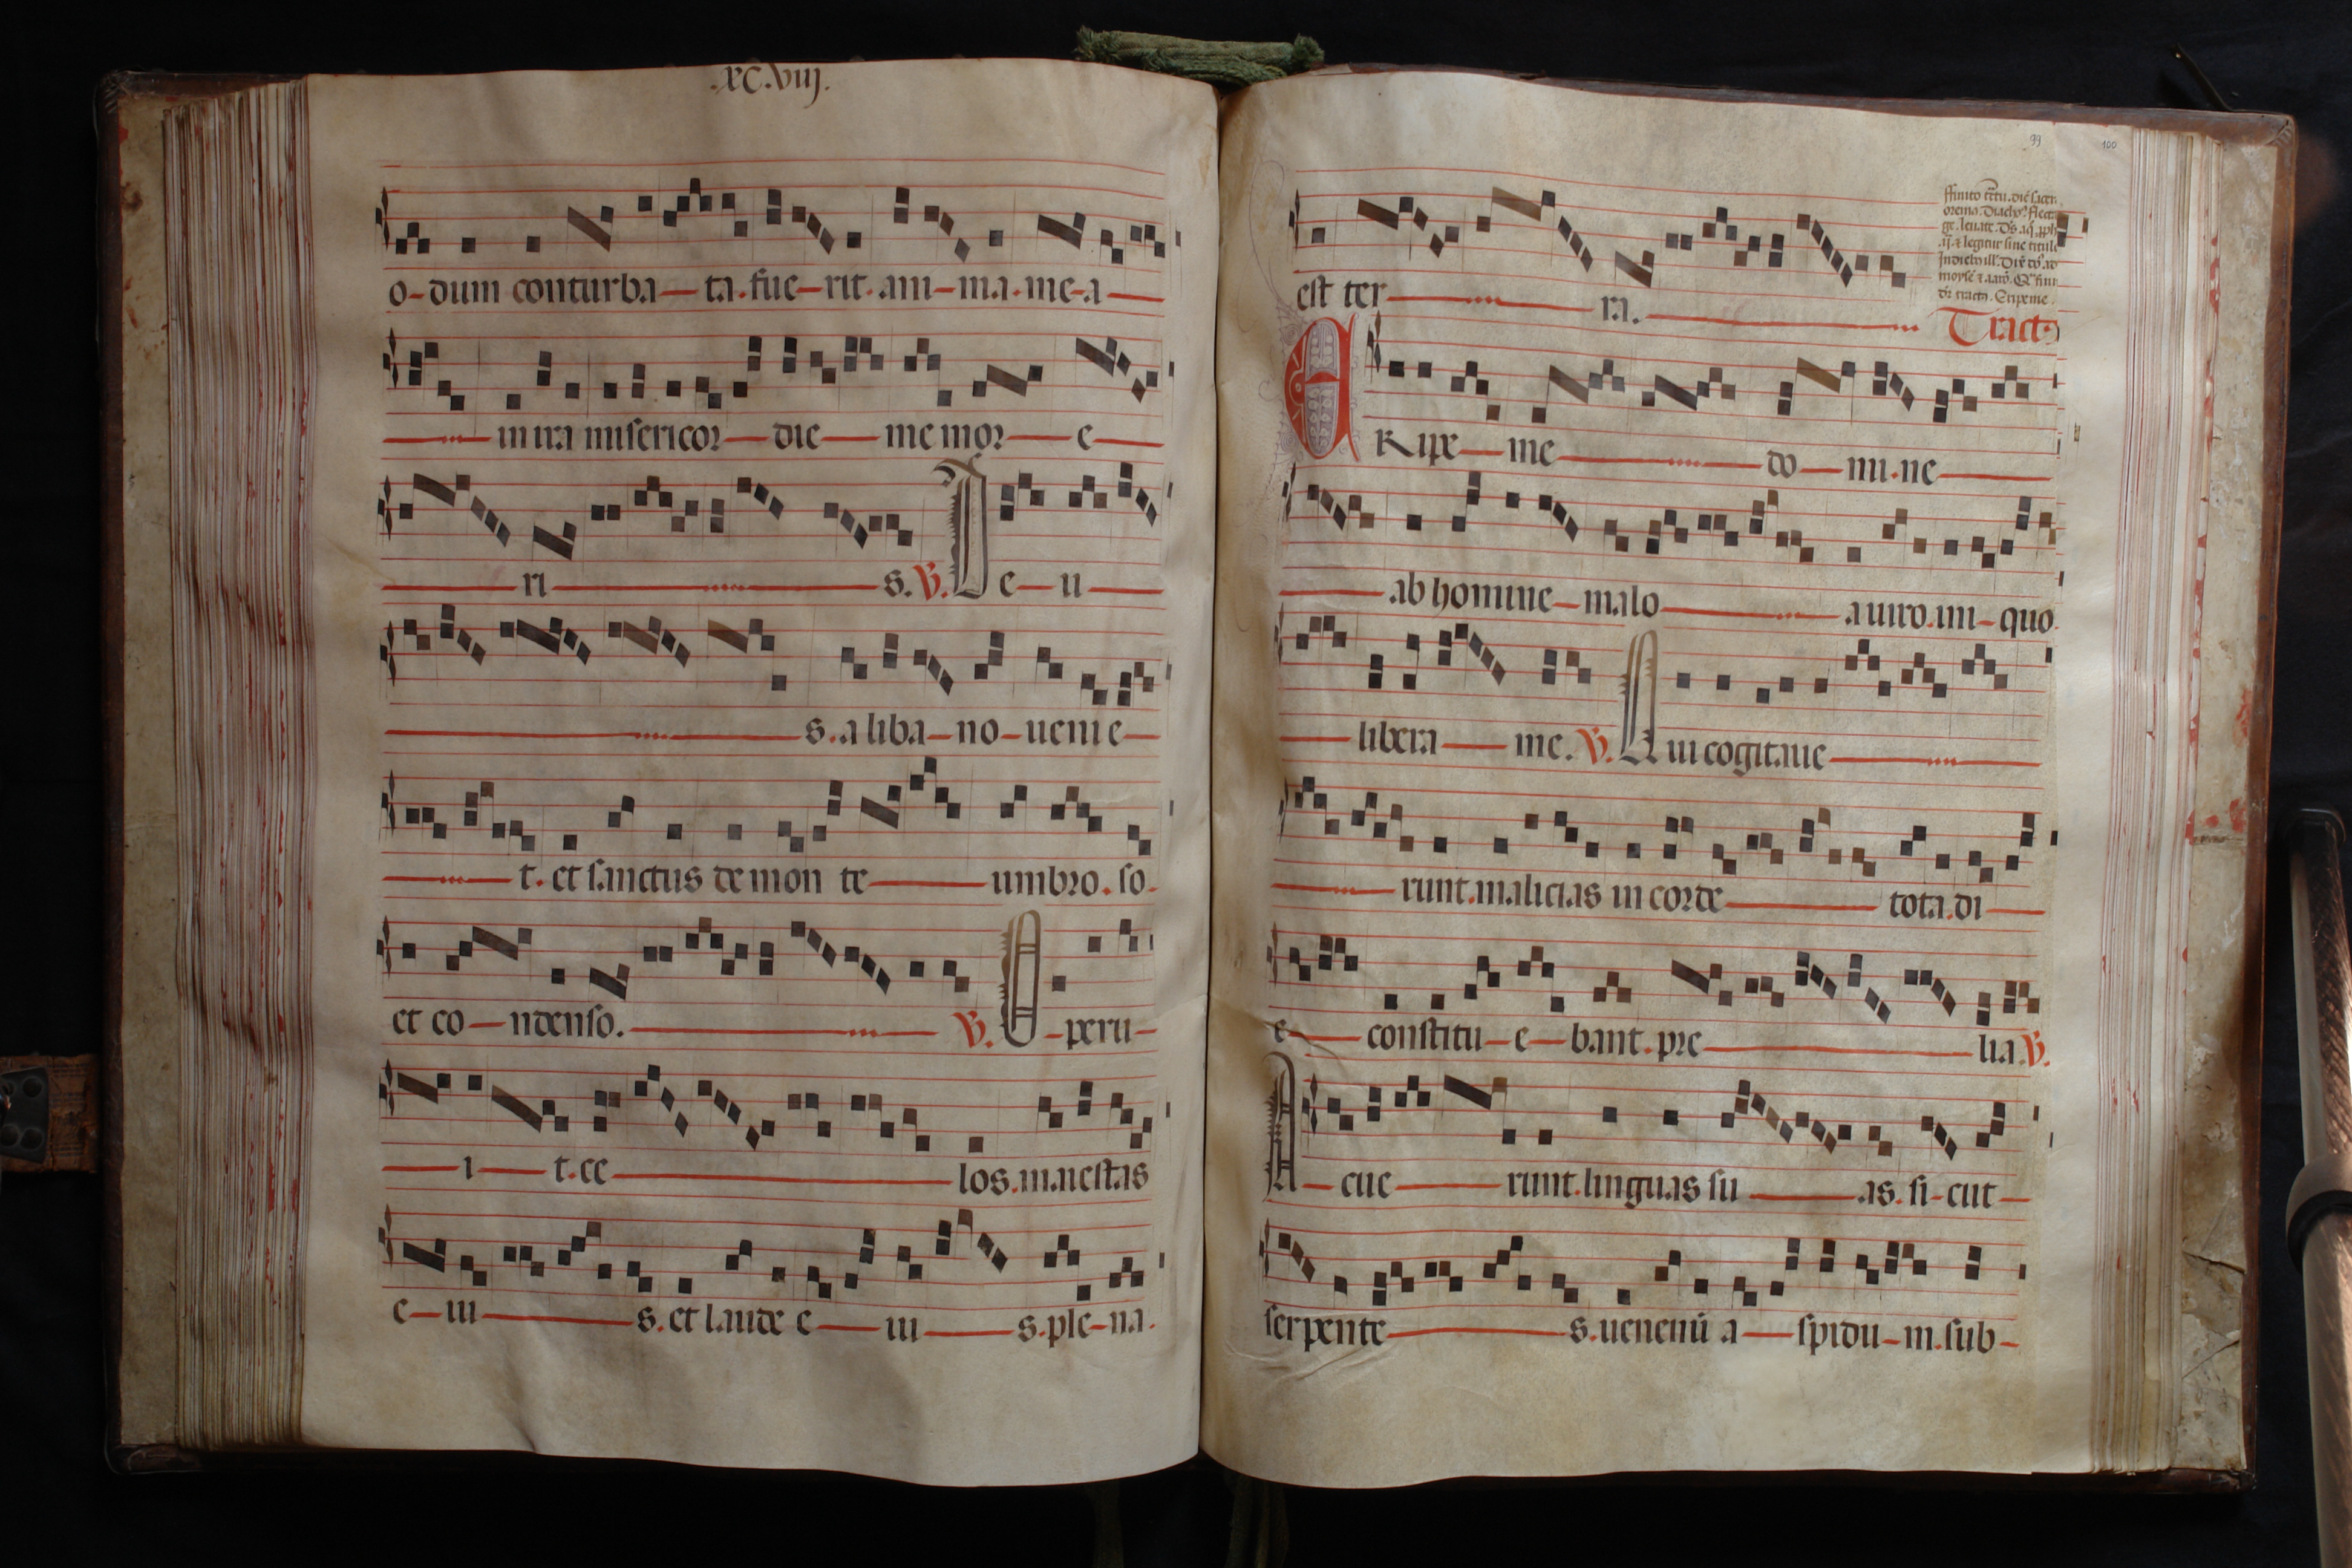 .XC.Viij.
o-dum conturba-ta.fue-rit.ani-ma.me-a
in ira misericor-die-memor-e
ri-s. V. De-u
s.a liba-no-uenie-
t.et sanctus de mon te-umbro.so.
et co-ndenso. V. O-peru-
i-t.ce-los.maiestas
e-iu-s.et laude e-iu-s.ple-na.
99
100
est ter-ra.
Tract9
ERipe-me-do-mi.ne
ab homine-malo-a uiro.ini-quo.
libera-me. V. Qui cogitaue
runt.malicias in corde-tota.di
e-constitu-e-bant.pre-lia. V.
Acue-runt.linguas su-as.si-cut-
serpente-s.uenenū a-spidu-m.sub-